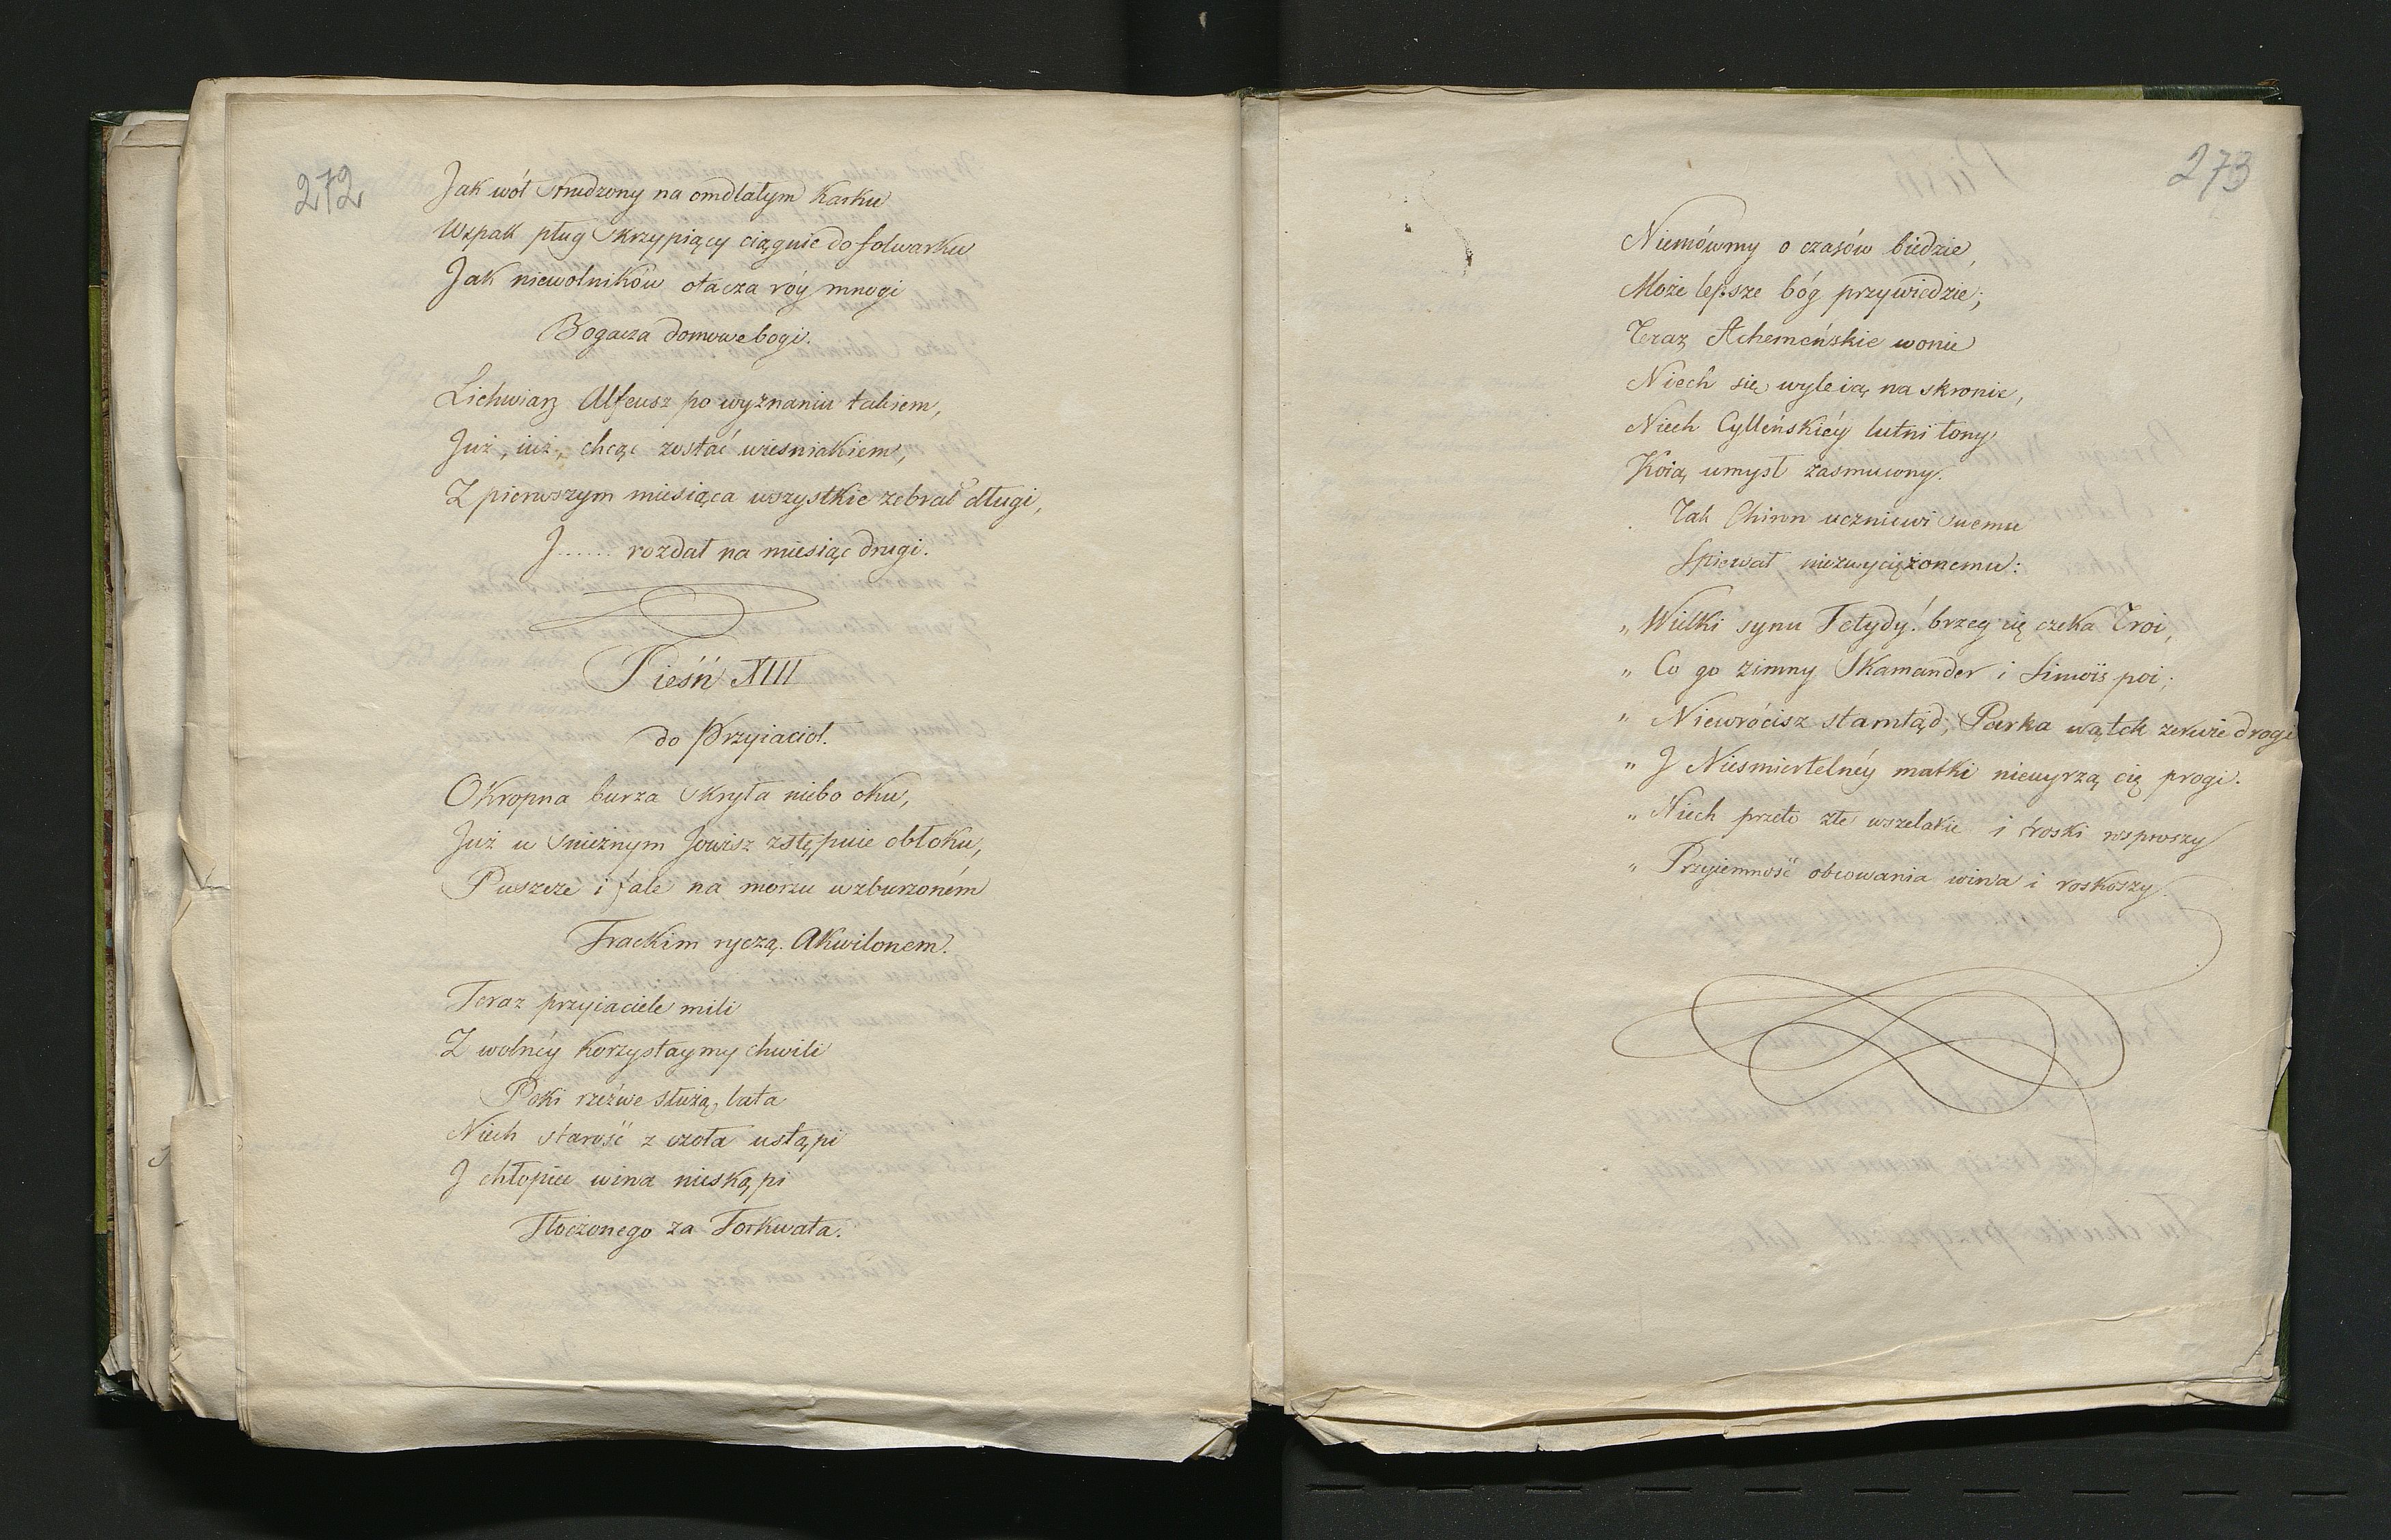 272
Jak wół znudzony na omdlałym karku
Wspak pług skrzypiący ciągnie do folwarku
Jak niewolników otacza róy mnogi
Bogacza domowe bogi.
Lichwiarz Alfeusz po wyznaniu takiem,
Już, iuż, chcąc zostać wieśniakiem,
Z pierwszym miesiąca wszystkie zebrał długi,
J...... rozdał na miesiąc drugi.
Pieśń XIII
do Przyiaciół.
Okropna burza skryła niebo oku,
Już w śnieżnym Jowisz zstępuie obłoku,
Puszcze i fale na morzu wzburzoném
Trackim ryczą Akwilonem.
Teraz przyiaciele mili
Z wolnéy korzystaymy chwili
Poki rzeźwe służą, lata
Niech starość z czoła ustąpi
J chłopiec wina nieskąpi
Tłoczonego za Torkwata.
273
Niemówmy o czasów biedzie,
Może lepsze bóg przywiedzie;
Teraz Achemeńskie wonie
Niech się wyleią na skronie,
Niech Cylleńskiéy lutni tony
Koią umysł zasmucony.
Tak Chiron uczniowi swemu
Spiewał niezwyciężonemu:
„ Wielki synu Tetydy! brzeg cię czeka Troi,
„ Co go zimny Skamander i Simoïs poi;
„ Niewrócisz stamtąd, Parka wątek zerwie drogi
„ J Niesmiertelnéy matki nieuyrzą cię progi.
„ Niech przeto złe wszelakie i troski rosproszy
„ Przyiemność obcowania wina i roskoszy.